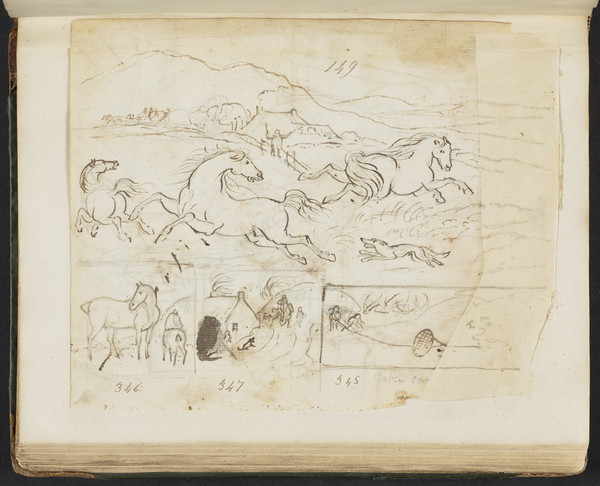 149
346
347
345